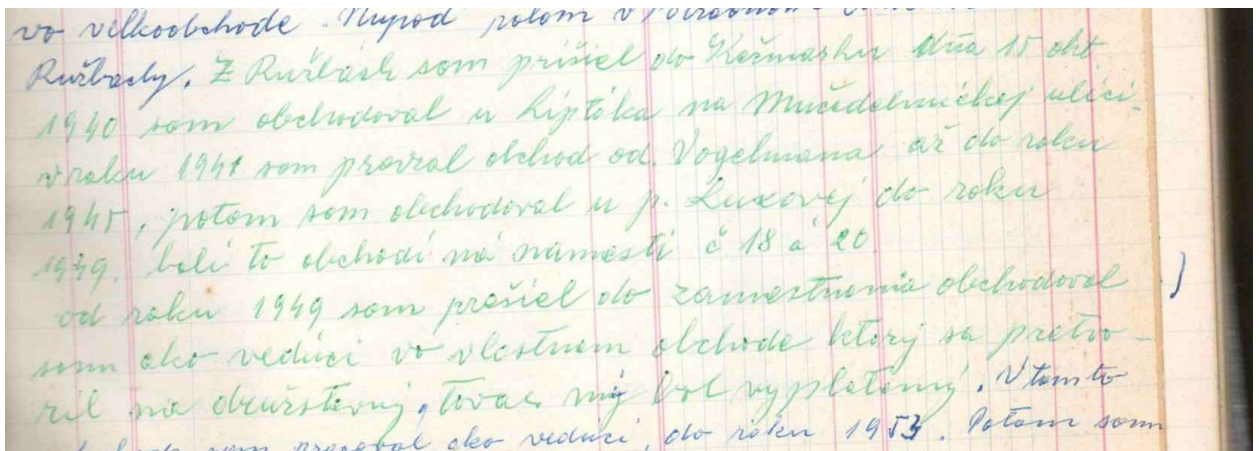 vo velkoobchode. Nupod potom v
Ružbachy. Z Ružbách som prišiel do Kežmarku dňa 15 okt
1940 som obchodoval u Liptáka na Mučedelníckej ulici.
v roku 1941 som prevzal obchod od Vogelmana až do roku
1945, potom som obchodoval u p. Luxovej do roku
1949. boli to obchodi na namesti č 18 a 20
od roku 1949 som prešiel do zamestnania obchodoval
som ako vedúci vo vlastnom obchode ktorý sa pretvo-
ril na družstevný, tovar mý bol vyplatený. V tomto
som pracoval ako vedúci, do roku 1953. Potom som